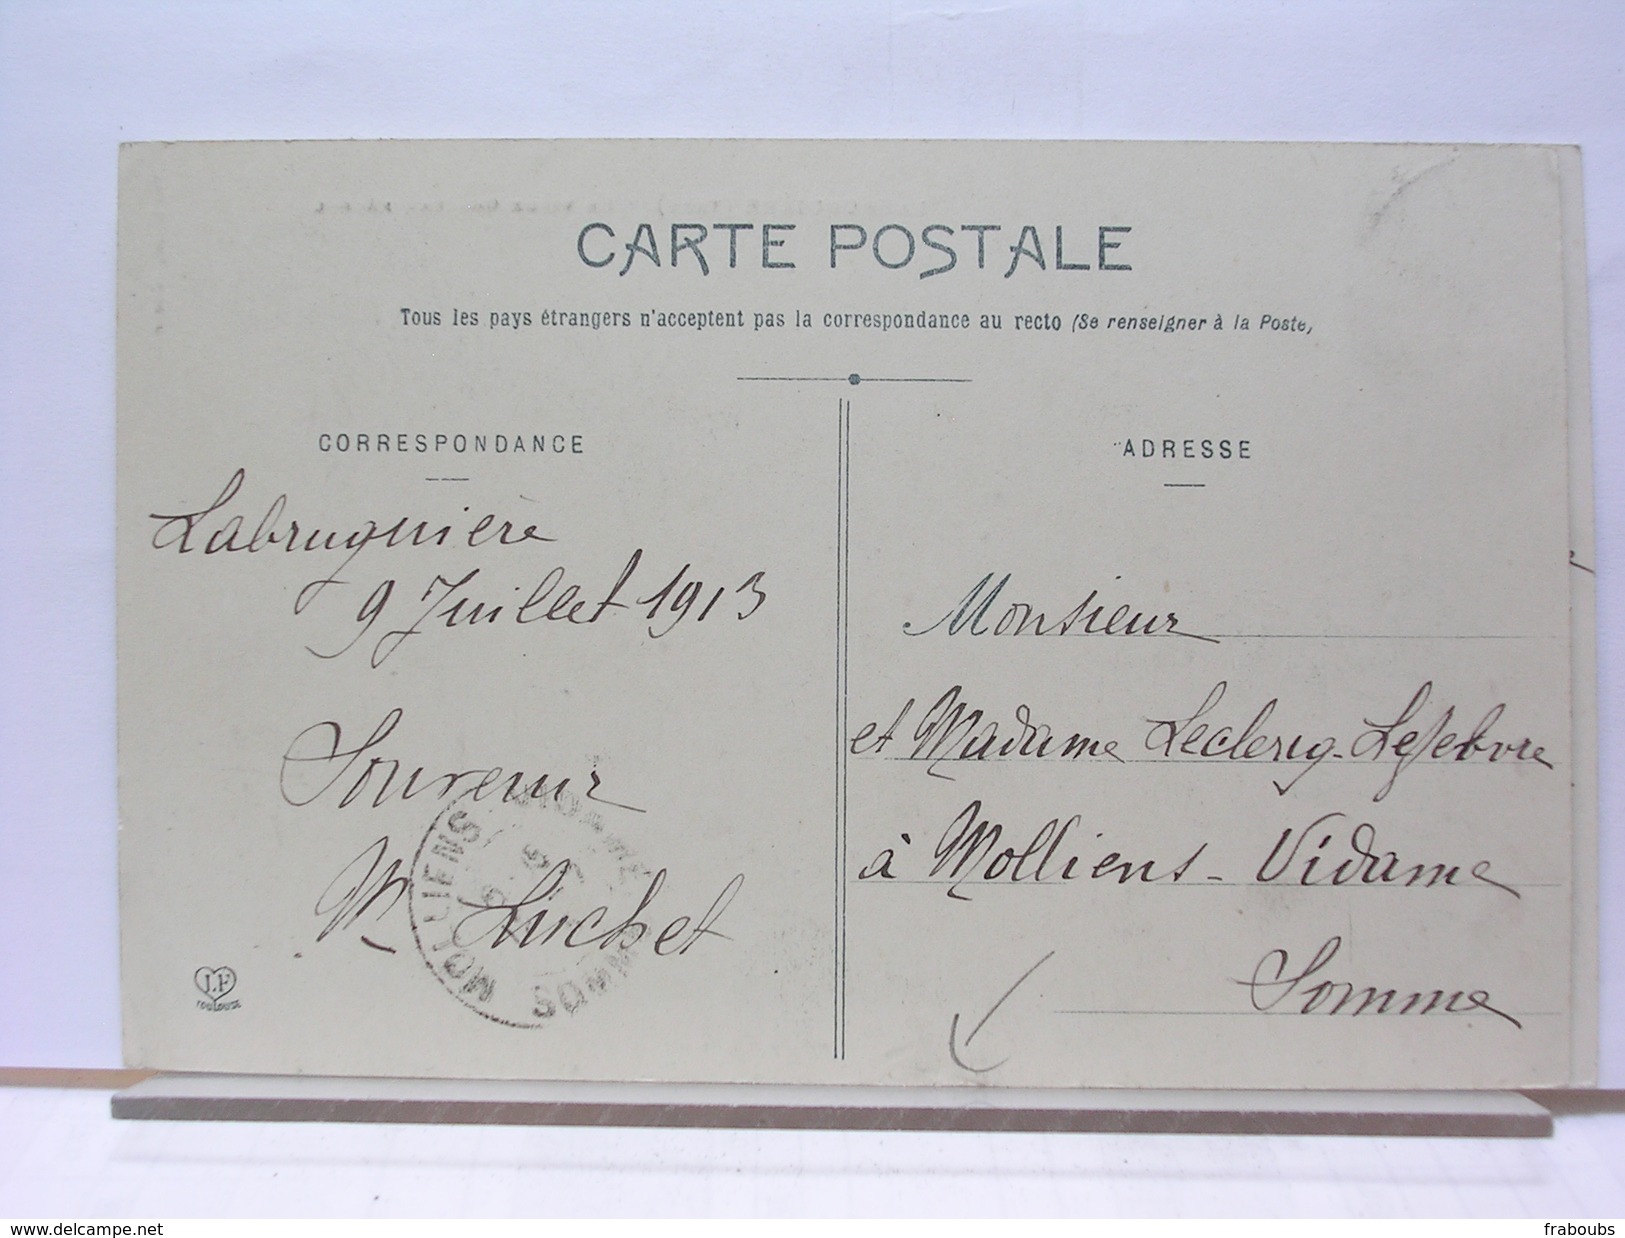 CARTE POSTALE
Tous les pays étrangers n'acceptent pas la correspondance au recto (Se renseigner à la Poste)
CORRESPONDANCE
Labruguière
9 Juillet 1913
Souvenir
Luchet
MOLLIENS VIDAME
SOMME
LF
TOULOUSE
ADRESSE
Monsieur
et Madame Leclercq-Lefebvre
à Molliens-Vidame
Somme
www.delcampe.net
fraboubs